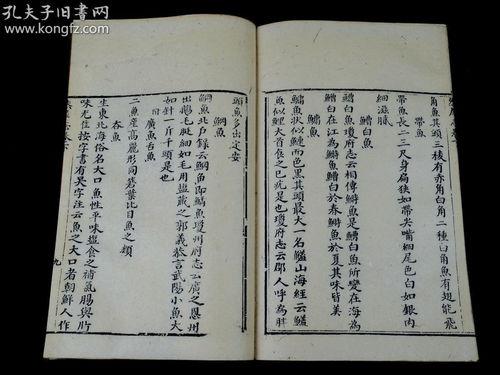 孔夫子旧书网
www.kongfz.com
角魚其頭三棱有赤角白角二種白角魚有翅能飛
帶魚
帶魚長二三尺身扁狹如帶尖嘴細尾色白如銀肉
細滋腴
鰽白魚
鰽白魚瓊府志云相傳鰣魚是鰽白魚所變在海
與白在江為鰣魚鰽白於春鰣魚於夏其味皆美
鱐魚
魚狀似鱧而色黑其頭最大一名 山海經云
魚似鯉大首食之已疣是也瓊府志云鄰人呼為
頭魚多出定安
鯛魚
鯛魚北戶錄云鯛魚即 魚瓊州府志云廣之恩州
出鵝毛脡細如毛用鹽藏之郭義恭言武陽小魚大
如針一斤千頭是也
廣魚 魚
二魚產高麗形同 葉比目魚之類
吞魚
生東北海俗名大口魚性平味鹹食之補氣腸與脂
味尤佳按字書有吴字注云魚之大口者朝鮮人作
九